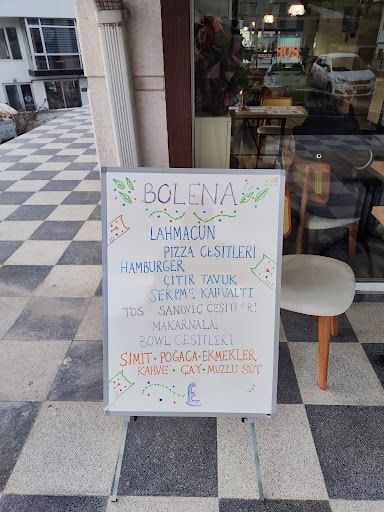 BOLENA
LAHMACUN
PIZZA CEŞITLERI
HAMBURGER
ÇITIR TAVUK
SERPME KAHVALTI
TOS SANDVIC ÇEŞITLERI
MAKARNALA
BOWL ÇEŞITLERI
SIMIT · POĞAÇA · EKMEKLER
KAHVE · ÇAY · MUZLU SÜT
E